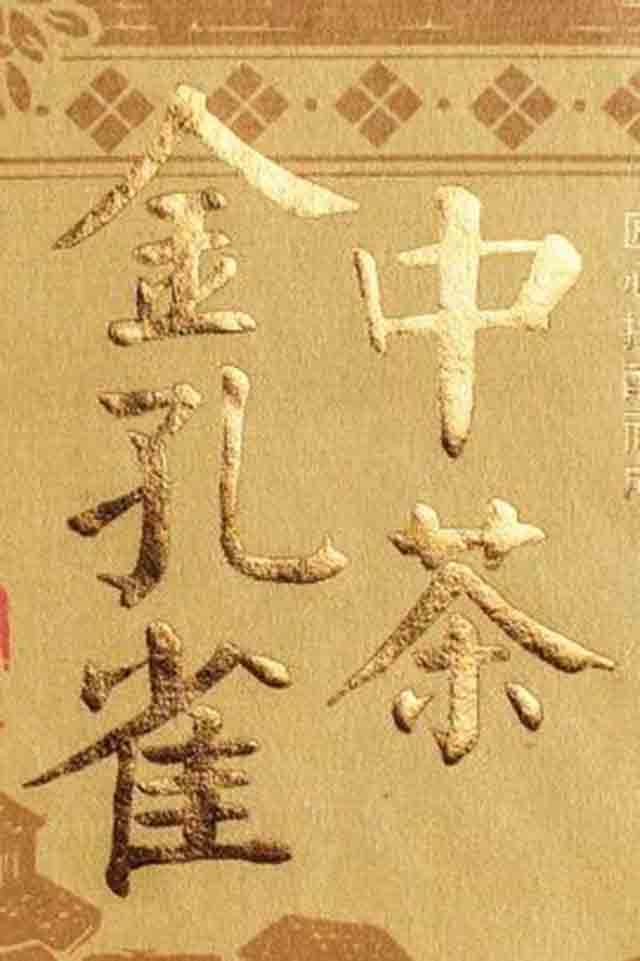 中茶
金孔雀